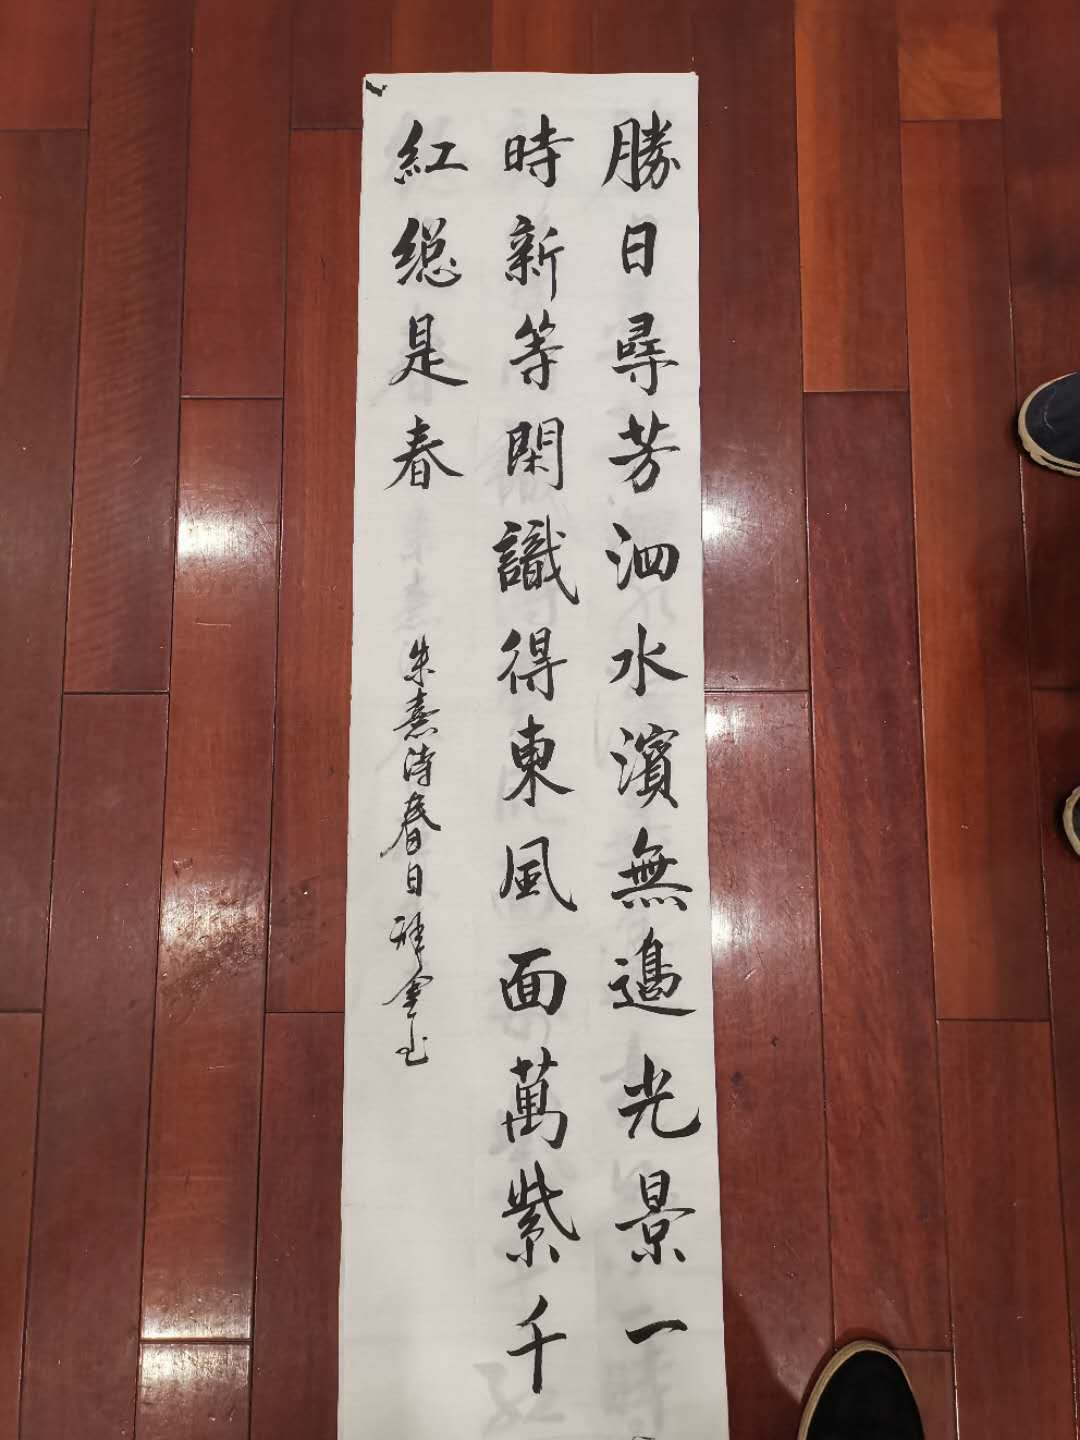 勝日尋芳泗水濱無邊光景一
時新等閑識得東風面萬紫千
紅總是春
朱熹詩春日